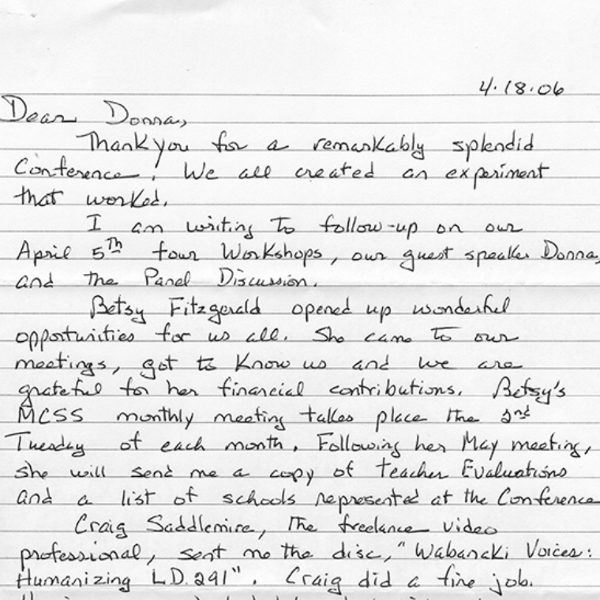 4.18.06
Dear Donna,
Thank you for a remarkably splendid
Conference! We all created an experiment
that worked.
I am writing to follow-up on our
April 5th four Workshops, our guest speaker Donna,
and the Panel Discussion.
Betsy Fitzgerald opened up wonderful
opportunities for us all. She came to our
meetings, got to know us and we are
grateful for her financial contributions. Betsy's
MCSS monthly meeting takes place the 2nd
Tuesday of each month. Following her May meeting,
she will send me a copy of Teacher Evaluations
and a list of schools represented at the Conference
Craig Saddlemire, the freelance video
professional, sent me the disc, "Wabanaki Voices:
Humanizing L.D. 291". Craig did a fine job.